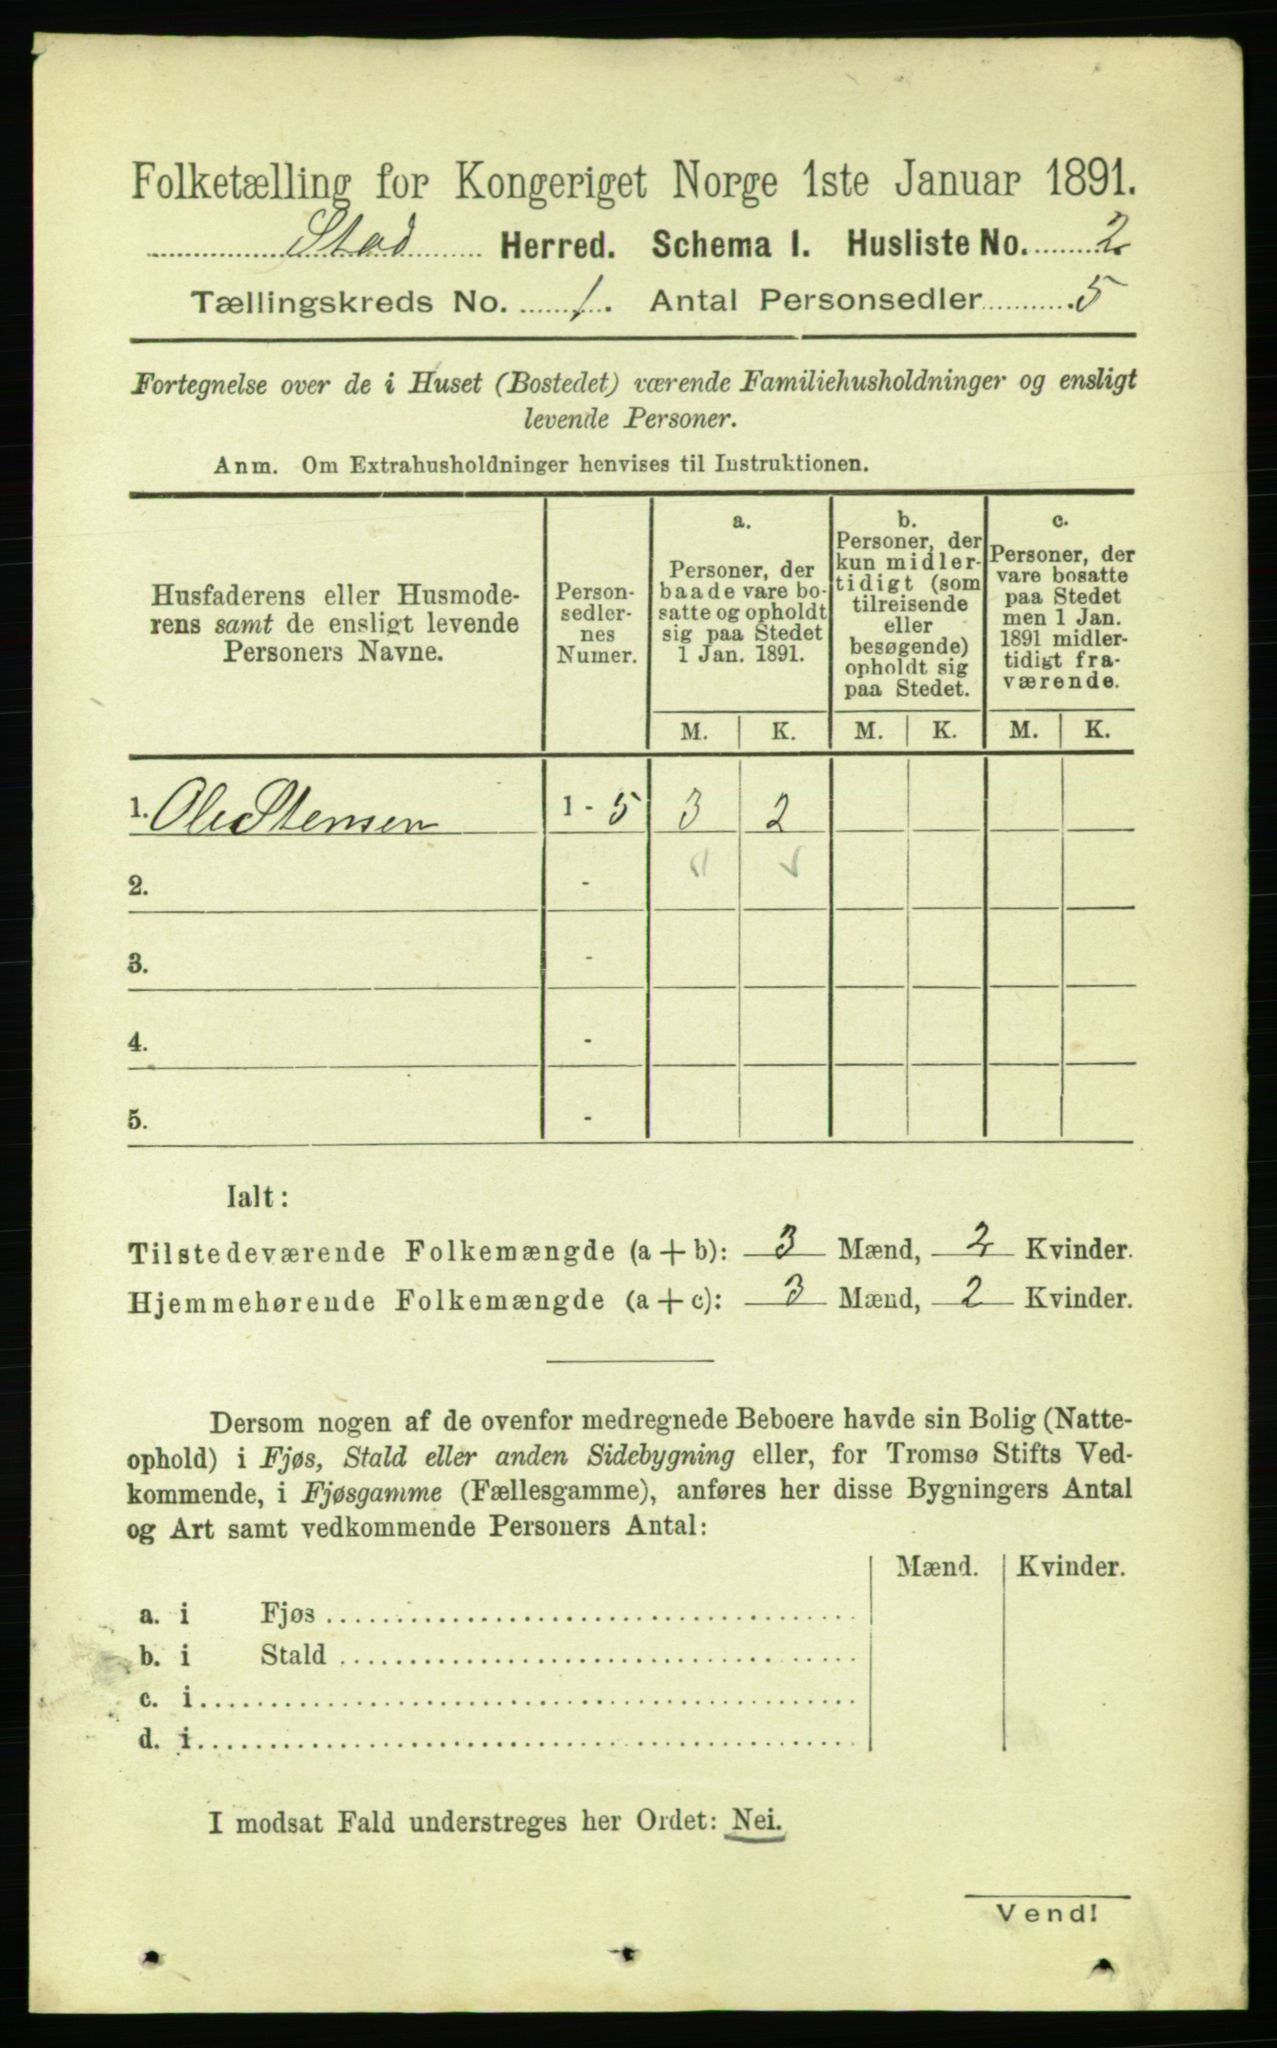 Folketælling for Kongeriget Norge 1ste Januar 1891.
Stod Herred. Schema I. Husliste No. 2
Tællingskreds No. 1. Antal Personsedler 5
Fortegnelse over de i Huset (Bostedet) værende Familiehusholdninger og ensligt
levende Personer.
Anm. Om Extrahusholdninger henvises til Instruktionen.
Husfaderens eller Husmode-
rens samt de ensligt levende
Personers Navne.
Person-
sedler-
nes
Numer.
a.
Personer, der
baade vare bo-
satte og opholdt
sig paa Stedet
1 Jan. 1891.
b.
Personer, der
kun midler-
tidigt (som
tilreisende
eller
besøgende)
opholdt sig
paa Stedet.
c.
Personer, der
vare bosatte
paa Stedet
men 1 Jan.
1891 midler-
tidigt fra-
værende.
M. K. M. K. M. K.
1. Ole Stensen 1 - 5 3 2
2. -
3. -
4. -
5. -
Ialt:
Tilstedeværende Folkemængde (a + b): 3 Mænd, 2 Kvinder.
Hjemmehørende Folkemængde (a + c): 3 Mænd, 2 Kvinder.
Dersom nogen af de ovenfor medregnede Beboere havde sin Bolig (Natte-
ophold) i Fjøs, Stald eller anden Sidebygning eller, for Tromsø Stifts Ved-
kommende, i Fjøsgamme (Fællesgamme), anføres her disse Bygningers Antal
og Art samt vedkommende Personers Antal:
Mænd. Kvinder.
a. i Fjøs
b. i Stald
c. i
d. i
I modsat Fald understreges her Ordet: Nei.
Vend!